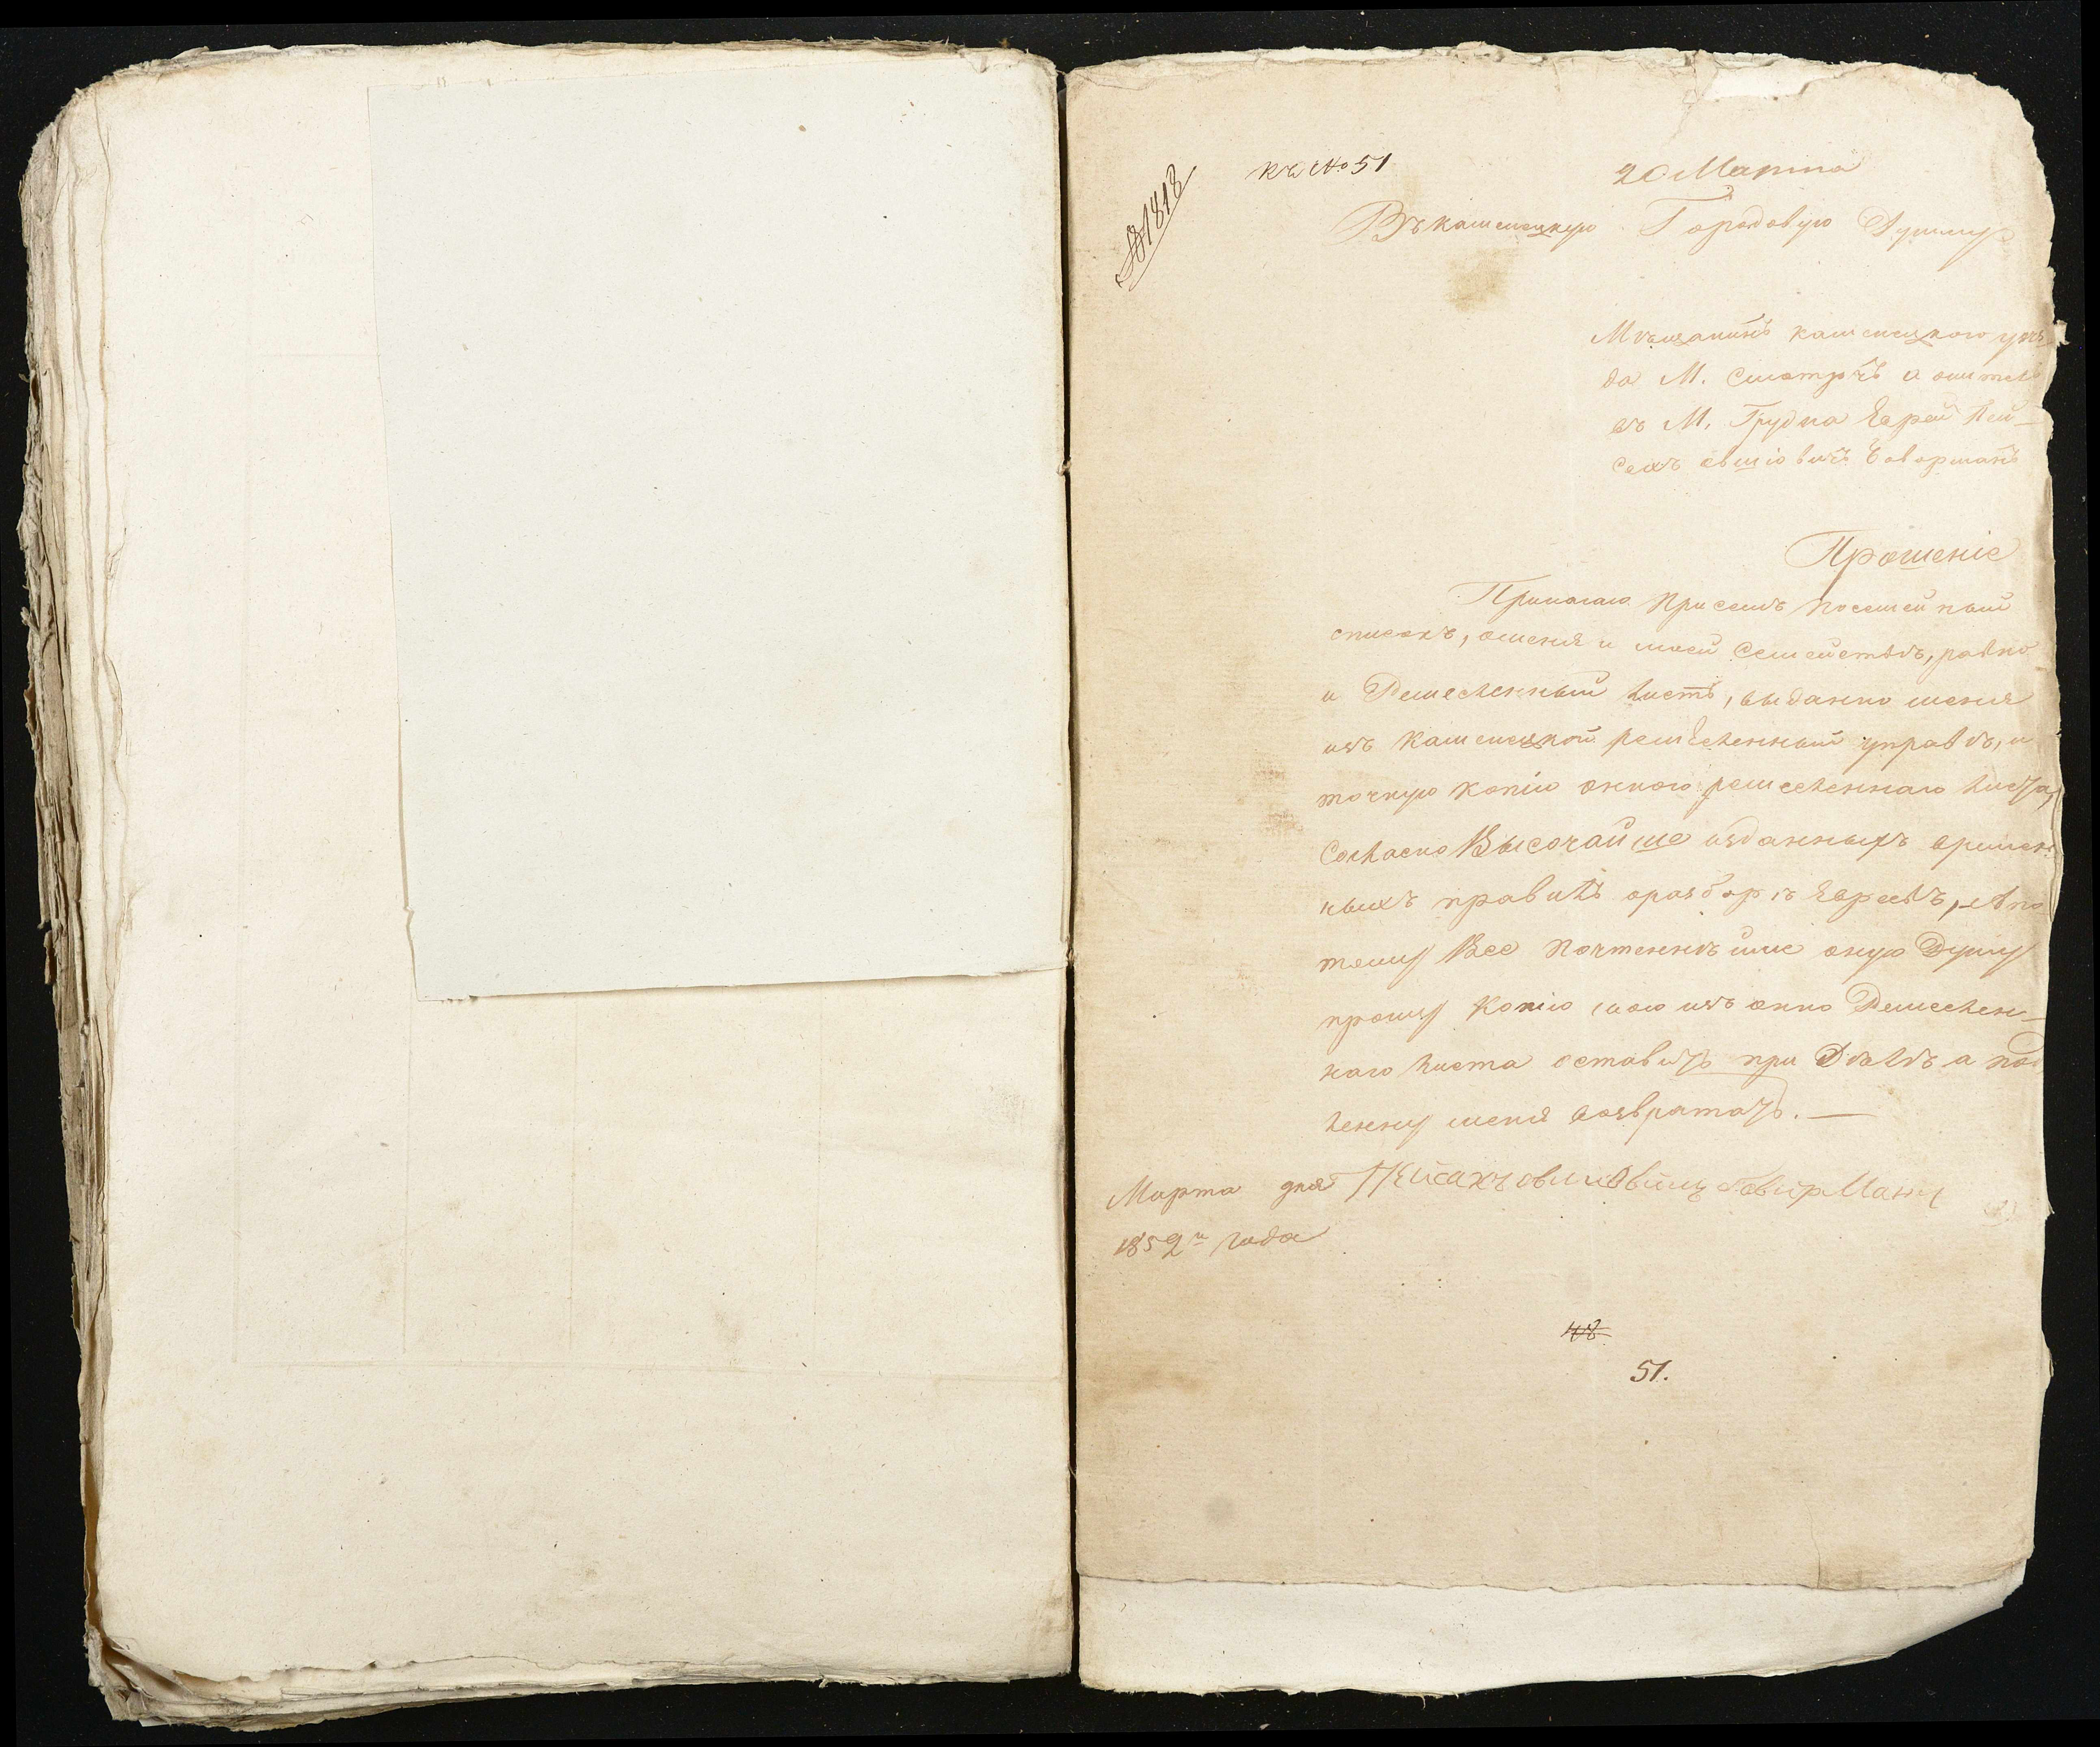 № 1818
къ № 51
20 Марта
Въ каменецкую Городовую Думу
Мѣщанинъ каменецкого уѣз
да М. Смотрѣчъ и жител
въ М. Грудка Еврей Пей-
сахъ овшіовичъ Говорманъ
Прошеніе
Прилагаю присемъ посемейный
списокъ, оменя и моей Семействѣ, равно
и Ремесленный листъ, выданно меня
изъ каменецкой ремесленный управѣ, и
точную копію оного ремесленнаго листа,
Согласно Высочайше изданныхъ времен
ныхъ правилъ оразборѣ Евреевъ, А по
тому Все Почтеннѣйше оную Думу
прошу Копію сиою изъ онно Ремеслен-
наго листа оставить при Дѣлѣ а под
ленну меня возвратать. —
Марта дня Пейсахъ овшиовичъ Говирманъ
1852го года
48.
51.